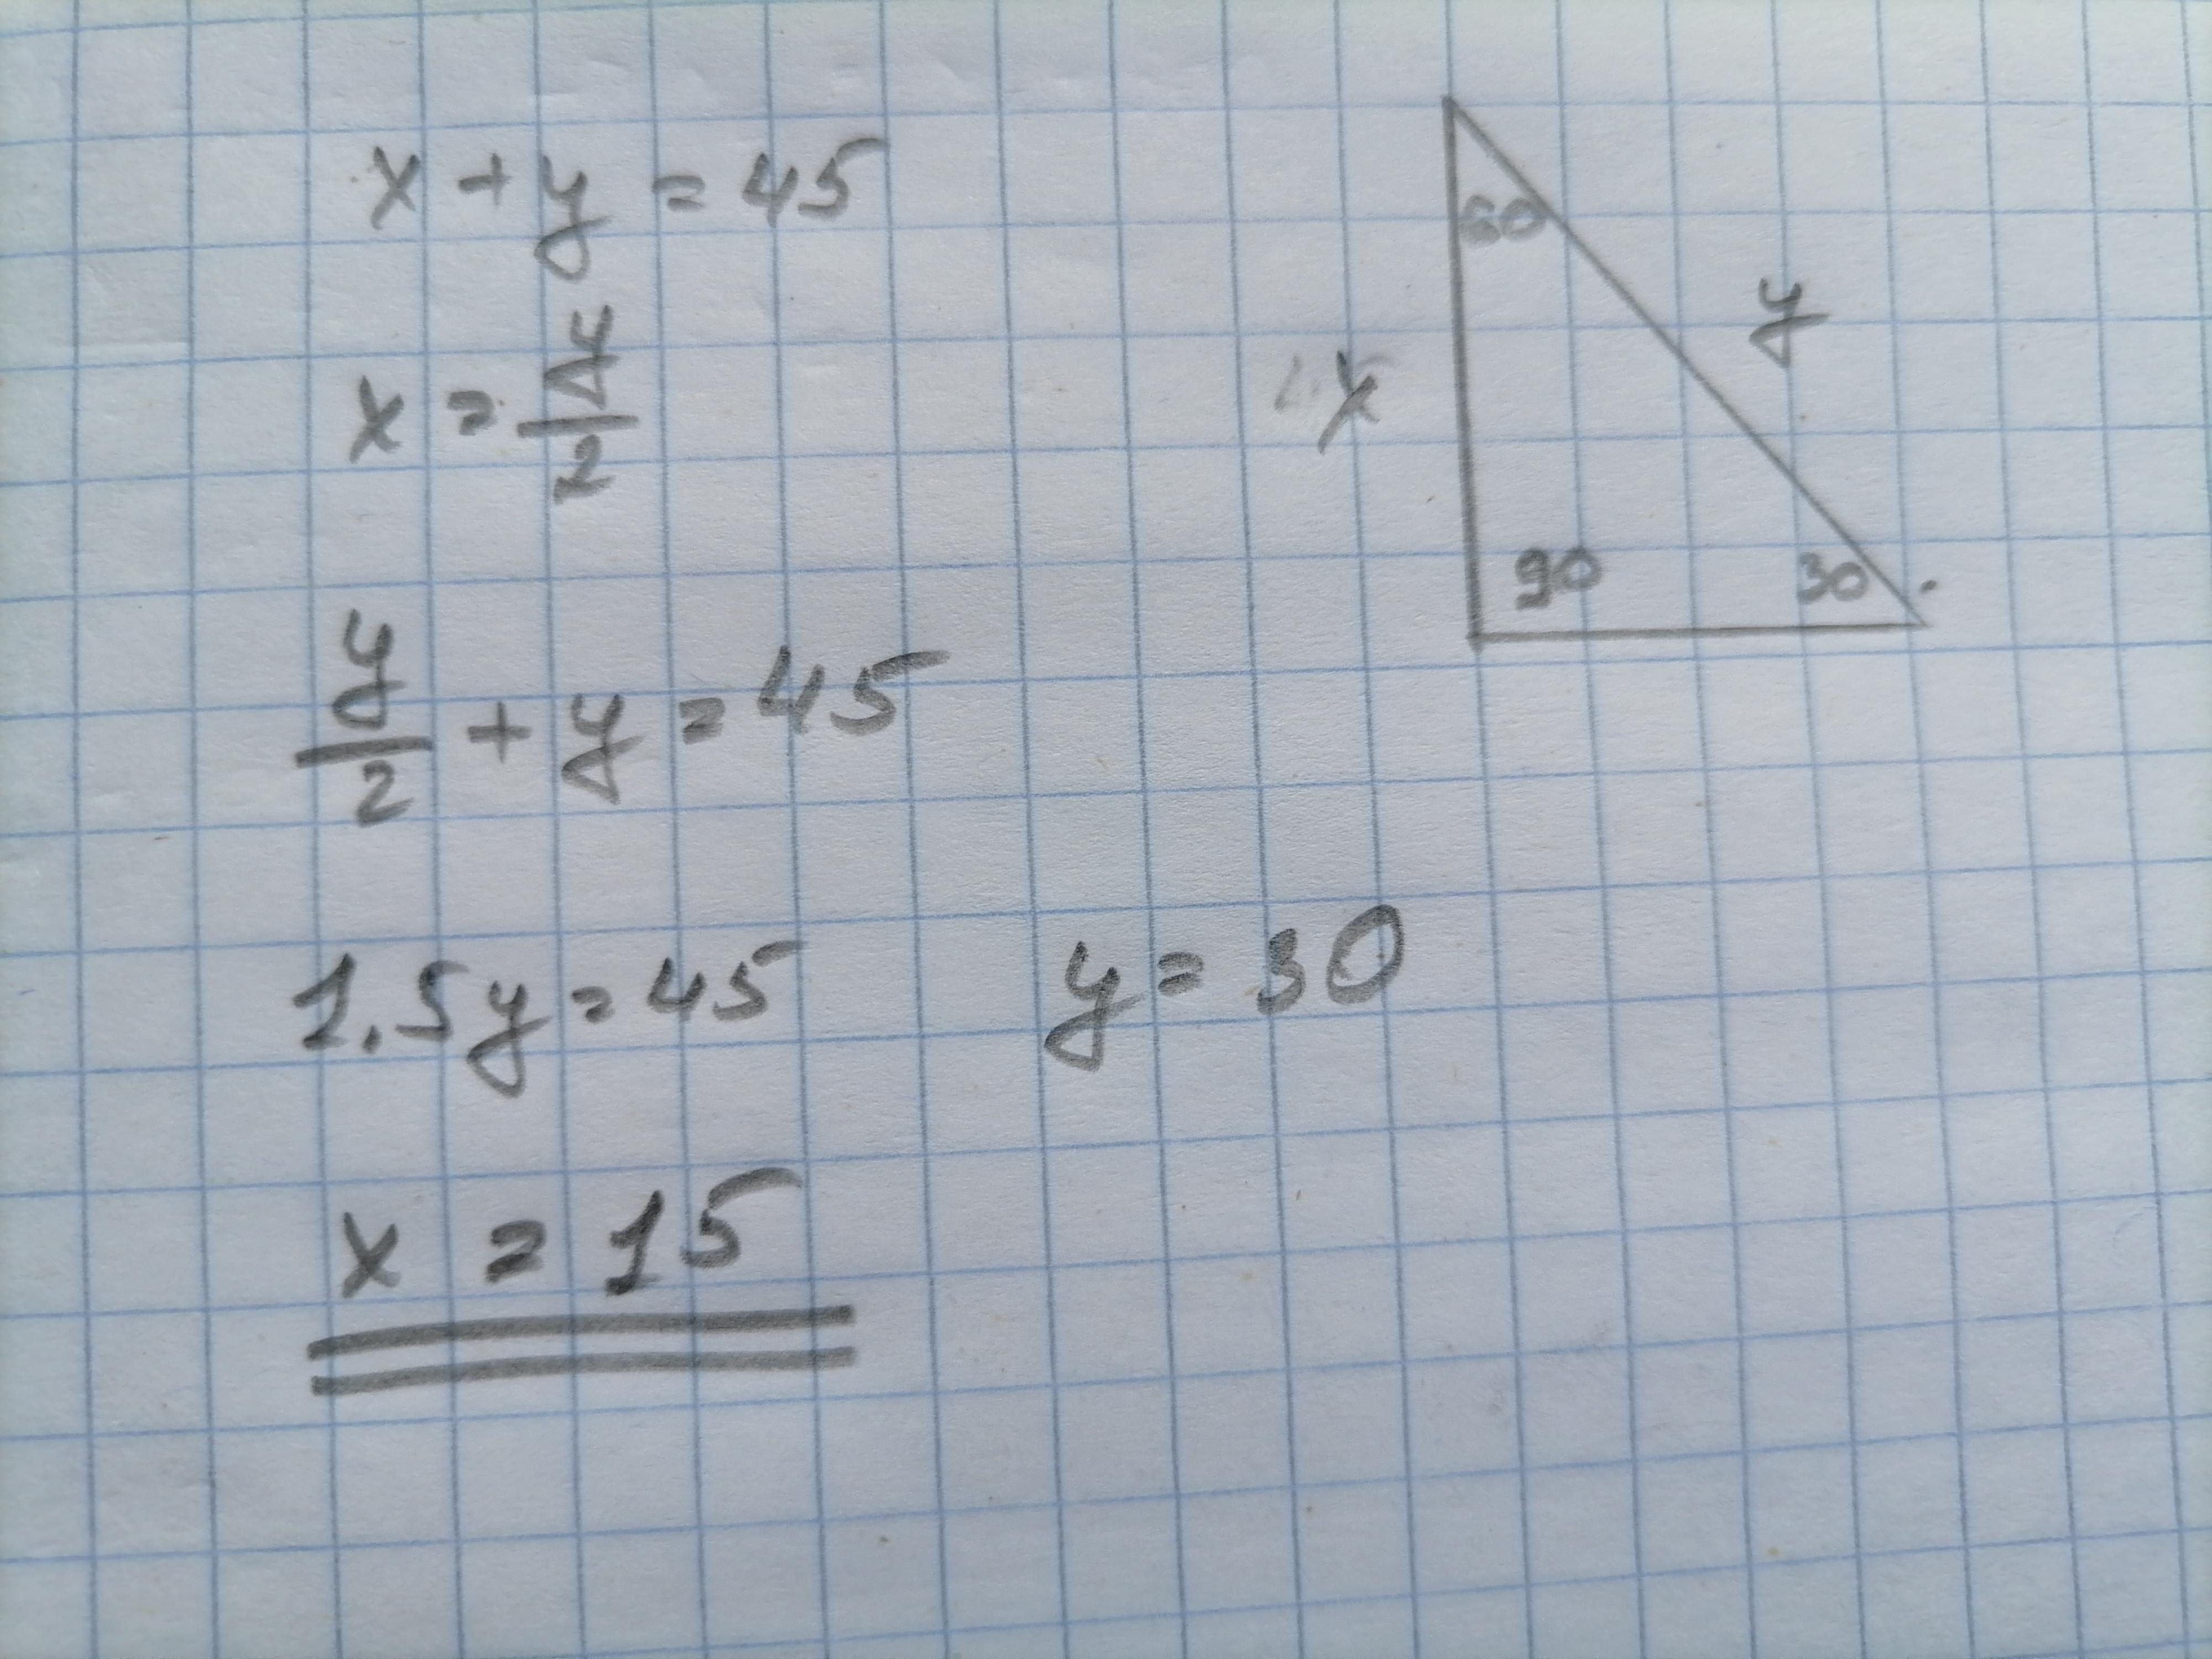 x + y = 45
x = y/2
y/2 + y = 45
1.5y = 45 y = 30
x = 15
60
y
x
90 30